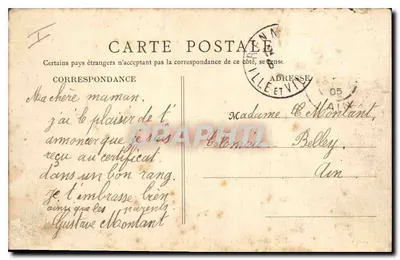 I
CARTE POSTALE
Certains pays étrangers n'acceptant pas la correspondance de ce côté, se renseigner
CORRESPONDANCE
ADRESSE
Ma chère maman.
j'ai le plaisir de t'
annoncer que je suis
reçu au certificat
dans un bon rang.
je t'embrasse bien
ainsi que les parents
Gustave Montant
Madame C Montant
Belley
Ain
ILLE ET VIL
05
AIN